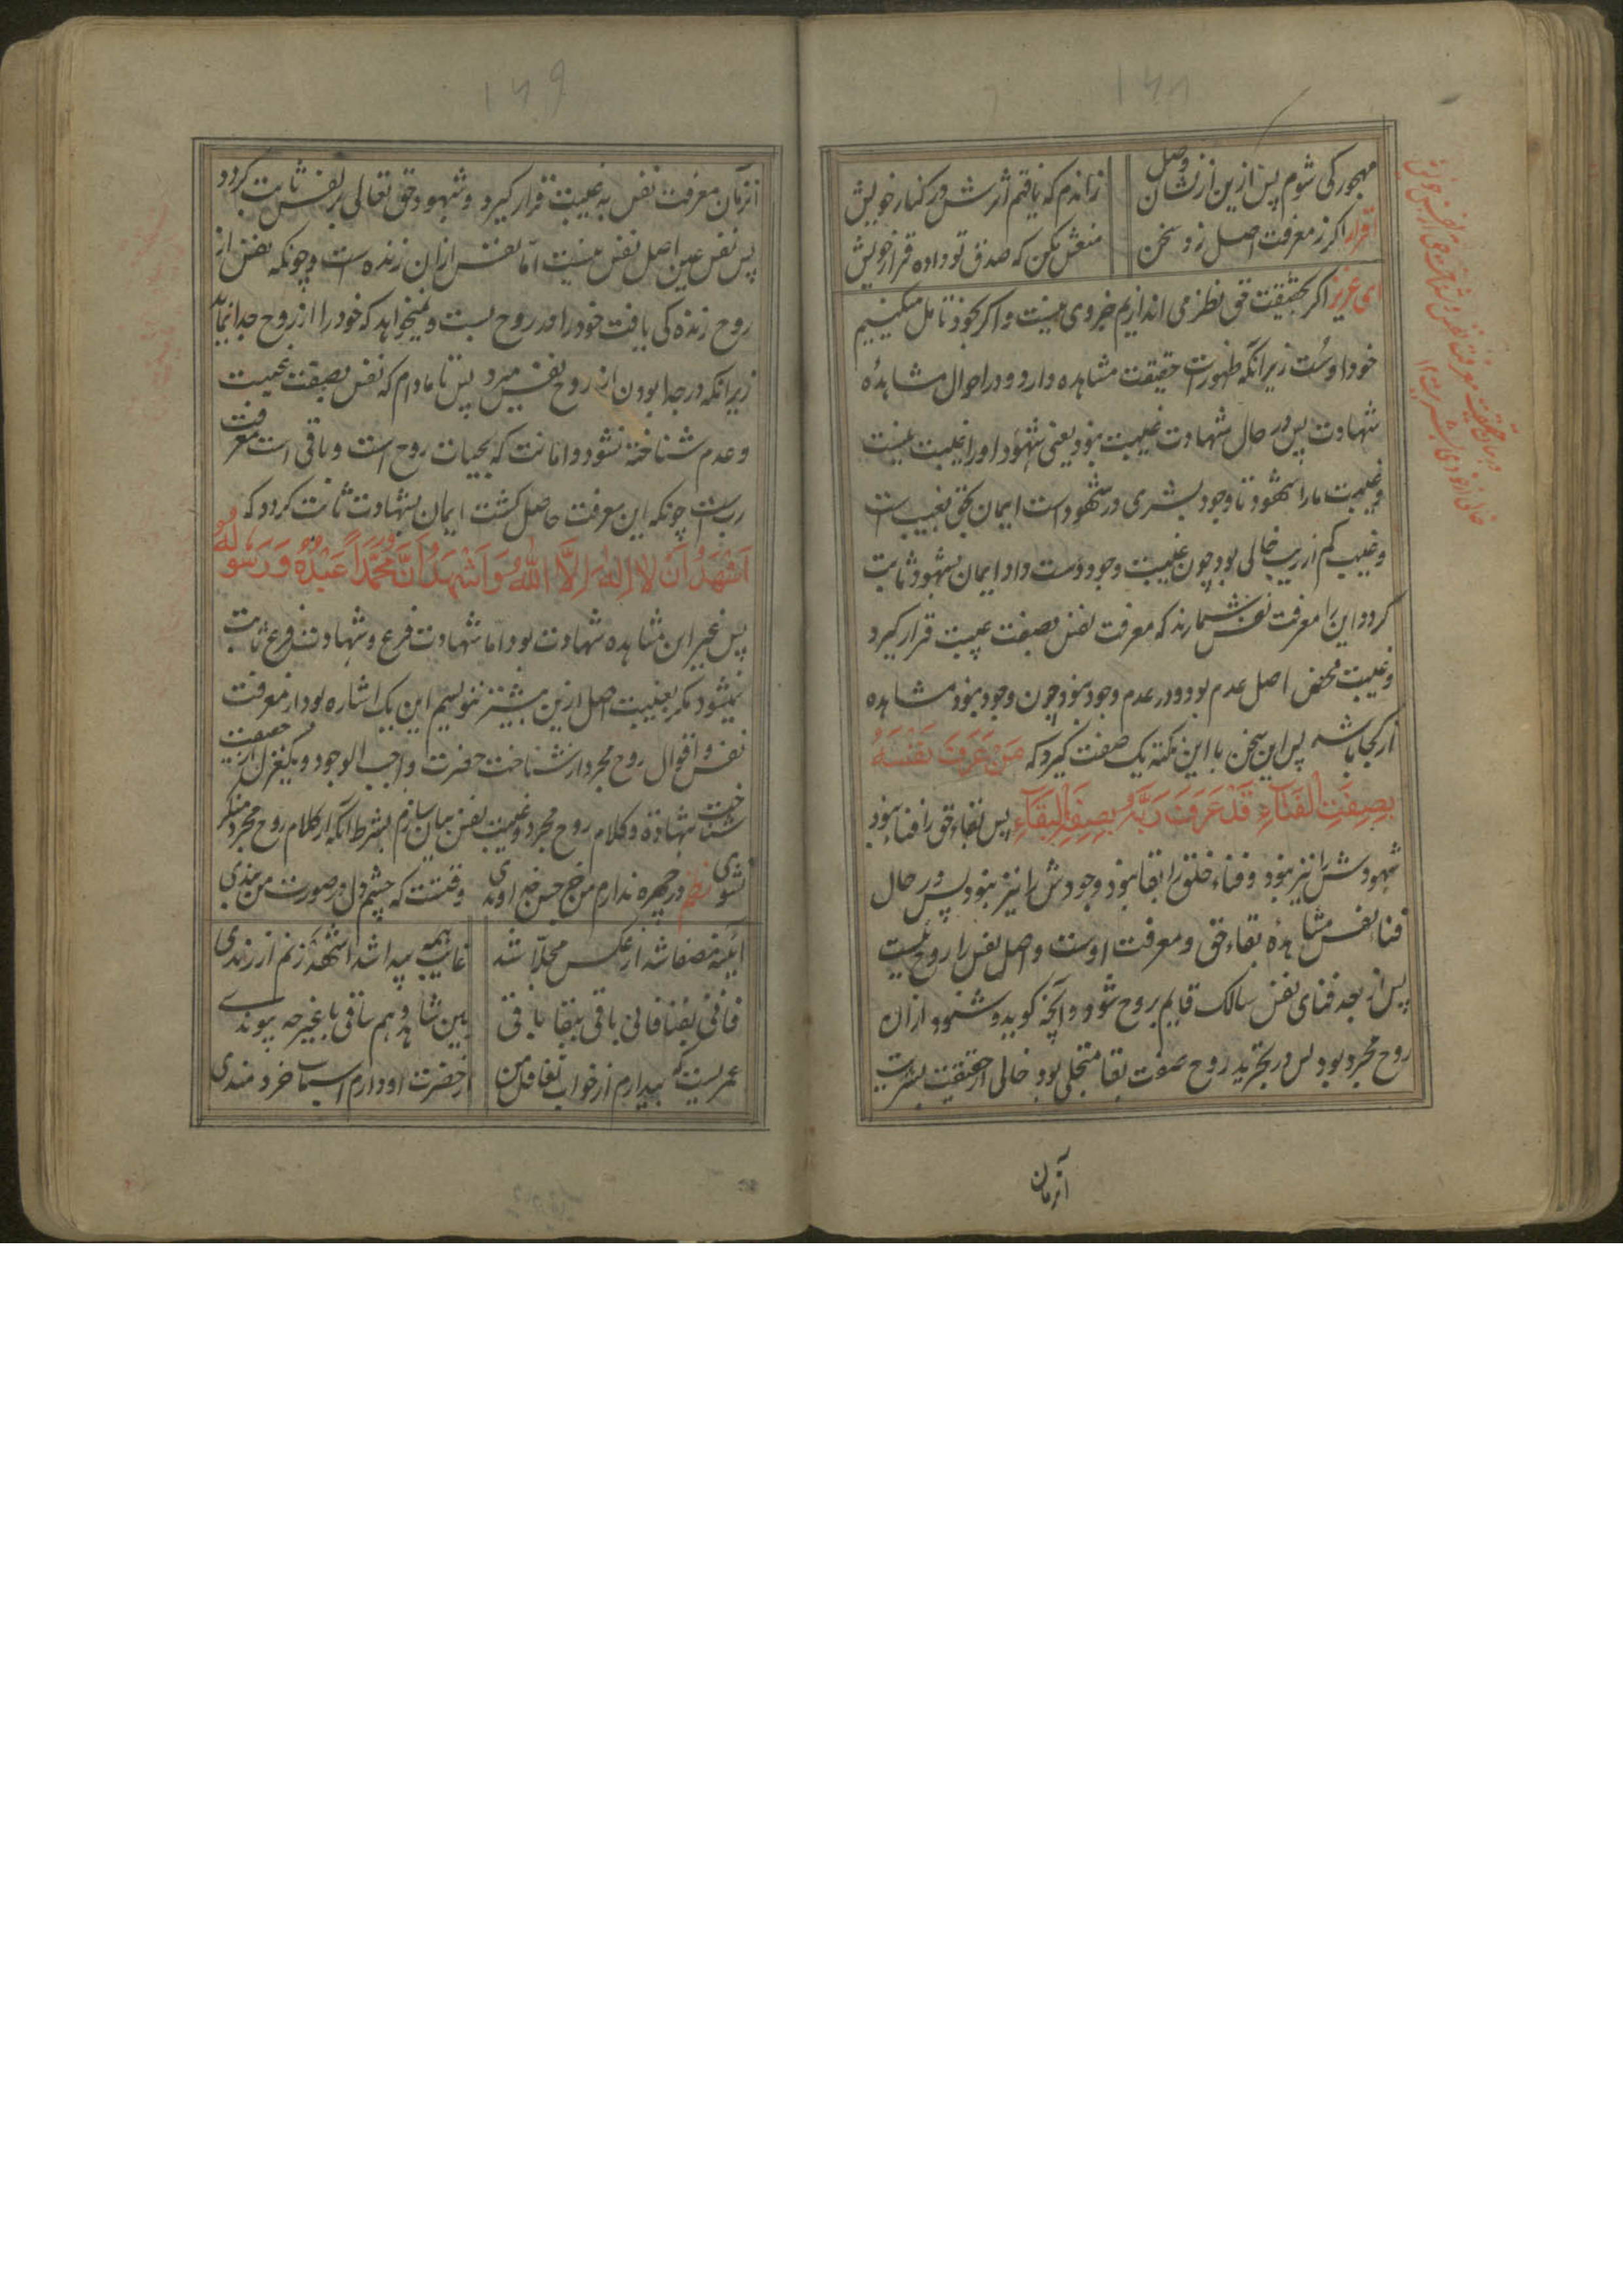 ۱۶۸
مهجور کی شوم پس ازین از نشان وصل
زاندم که یافتم اثرش در کنار خویش
اقرار اگر ز معرفت اصل زد سخن
منعش مکن که صدق تو داده قرار خویش
ای عزیز اگر بحقیقت حق نظر می اندازیم جز وی نیست و اگر بخود تامل میکنیم
خود اوست زیرانکه ظهورات حقیقت مشاهده دارد و در احوال مشاهدهٔ
شهادت پس در حال شهادت غیبت نبود یعنی شهود او را غیبت نیست
و غیبت ما را شهود تا وجود بشری در شهود است ایمان بحق بغیب است
و غیب کم از ریب خالی بود چون غیبت وجود دست داد ایمان بشهود ثابت
گردد این را معرفت نفس شمارند که معرفت نفس بصفت غیبت قرار گیرد
و غیبت محض اصل عدم بود و در عدم وجود نبود چون وجود نبود مشاهده
از کجا باشد پس این سخن با این نکته یک صفت گیرد که مَنْ عَرَفَ نَفْسَهُ
بِصِفَتِ الْفَنَآءِ قَدْ عَرَفَ رَبَّهُ بِصِفَتِ الْبَقَآءِ پس بقاء حق را فناء نبود
شهودش را نیز نبود و فناء خلق را بقا نبود وجودش را نیز نبود پس در حال
فناء نفس مشاهدهٔ بقاء حق و معرفت اوست و اصل نفس را روح نیست
پس از بعد فنای نفس سالک قایم بروح شود و آنچه گوید و شنود ازان
روح مجرد بود پس در تجرید روح بصفوت بقا متجلی بود خالی از حقیقت بشریت
آنزمان
۱۶۹
آنزمان معرفت نفس به غیبت قرار گیرد و شهود حق تعالی بر نفس ثابت گردد
پس نفس عین اصل نفس نیست امّا نفس ازان زنده است و چونکه نفس از
روح زندگی یافت خود را در روح بست و نمیخواهد که خود را از روح جدا نماید
زیرانکه در جدا بودن از روح نفس میرد پس تا مادام که نفس بصفت غیبت
و عدم شناخته نشود و امانت که بحیات روح است و باقی است معرفت
رب است چونکه این معرفت حاصل گشت ایمان بشهادت ثابت گردد که
اَشْهَدُ اَنْ لَا اِلٰهَ اِلَّا اللهُ وَاَشْهَدُ اَنَّ مُحَمَّداً عَبْدُهُ وَرَسُولُهُ
پس غیر این مشاهده شهادت بود اما شهادت فرع و شهادت فرع ثابت
نمیشود مگر بغیبت اصل ازین بیشتر ننویسم این یک اشاره بود از معرفت
نفس و اقوال روح مجرد از شناخت حضرت واجب الوجود و یکغزل از حقیقت
شناخت شهادة و کلام روح مجرد و غیبت نفس بیان سازم بشرط آنکه از کلام روح مجرد منکر
نشوی نظم در چهره ندارم من جز حسن خداوندی وقتست که چشم دل در صورت من بندی
آئینه مصفا شد از عکس مجلّا شد
غائب همه پیدا شد اشهد زنم از رندی
فانی بفنا فانی باقی ببقا باقی
بین شاهد و هم ساقی با غیر چه پیوندی
عمریست که بیدارم از خواب تغافل من
از حضرت او دارم اسباب خردمندی